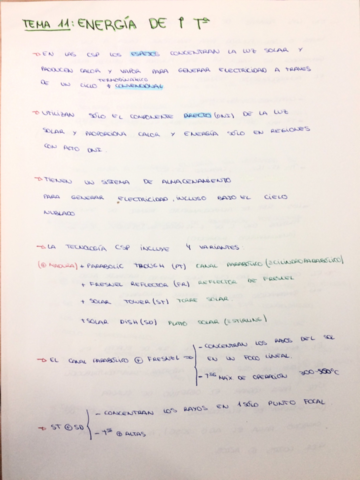 TEMA 11: ENERGÍA DE ↑ Tª
→ EN LAS CSP LOS ESPEJOS CONCENTRAN LA LUZ SOLAR Y
PRODUCEN CALOR Y VAPOR PARA GENERAR ELECTRICIDAD A TRAVÉS
TERMODINÁMICO
DE UN CICLO CONVENCIONAL
→ UTILIZAN SÓLO EL COMPONENTE DIRECTO (DNI) DE LA LUZ
SOLAR Y PROPORCIONA CALOR Y ENERGÍA SÓLO EN REGIONES
CON ALTO DNI.
→ TIENEN UN SISTEMA DE ALMACENAMIENTO
PARA GENERAR ELECTRICIDAD, INCLUSO BAJO EL CIELO
NUBLADO
→ LA TECNOLOGÍA CSP INCLUYE 4 VARIANTES
(⊕ MADURA) + PARABOLIC THROUGH (PT) CANAL PARABÓLICO (CILINDRO PARABÓLICO)
+ FRESNEL REFLECTOR (FR) REFLECTOR DE FRESNEL
+ SOLAR TOWER (ST) TORRE SOLAR
+ SOLAR DISH (SD) PLATO SOLAR (STIRLING)
→ EL CANAL PARABÓLICO ⊕ FRESNEL →
- CONCENTRAN LOS RAYOS DEL SOL
EN UN FOCO LINEAL
- Tª MÁX DE OPERACIÓN 300-550ºC
→ ST ⊕ SD
- CONCENTRAN LOS RAYOS EN 1 SÓLO PUNTO FOCAL
- Tª ⊕ ALTAS